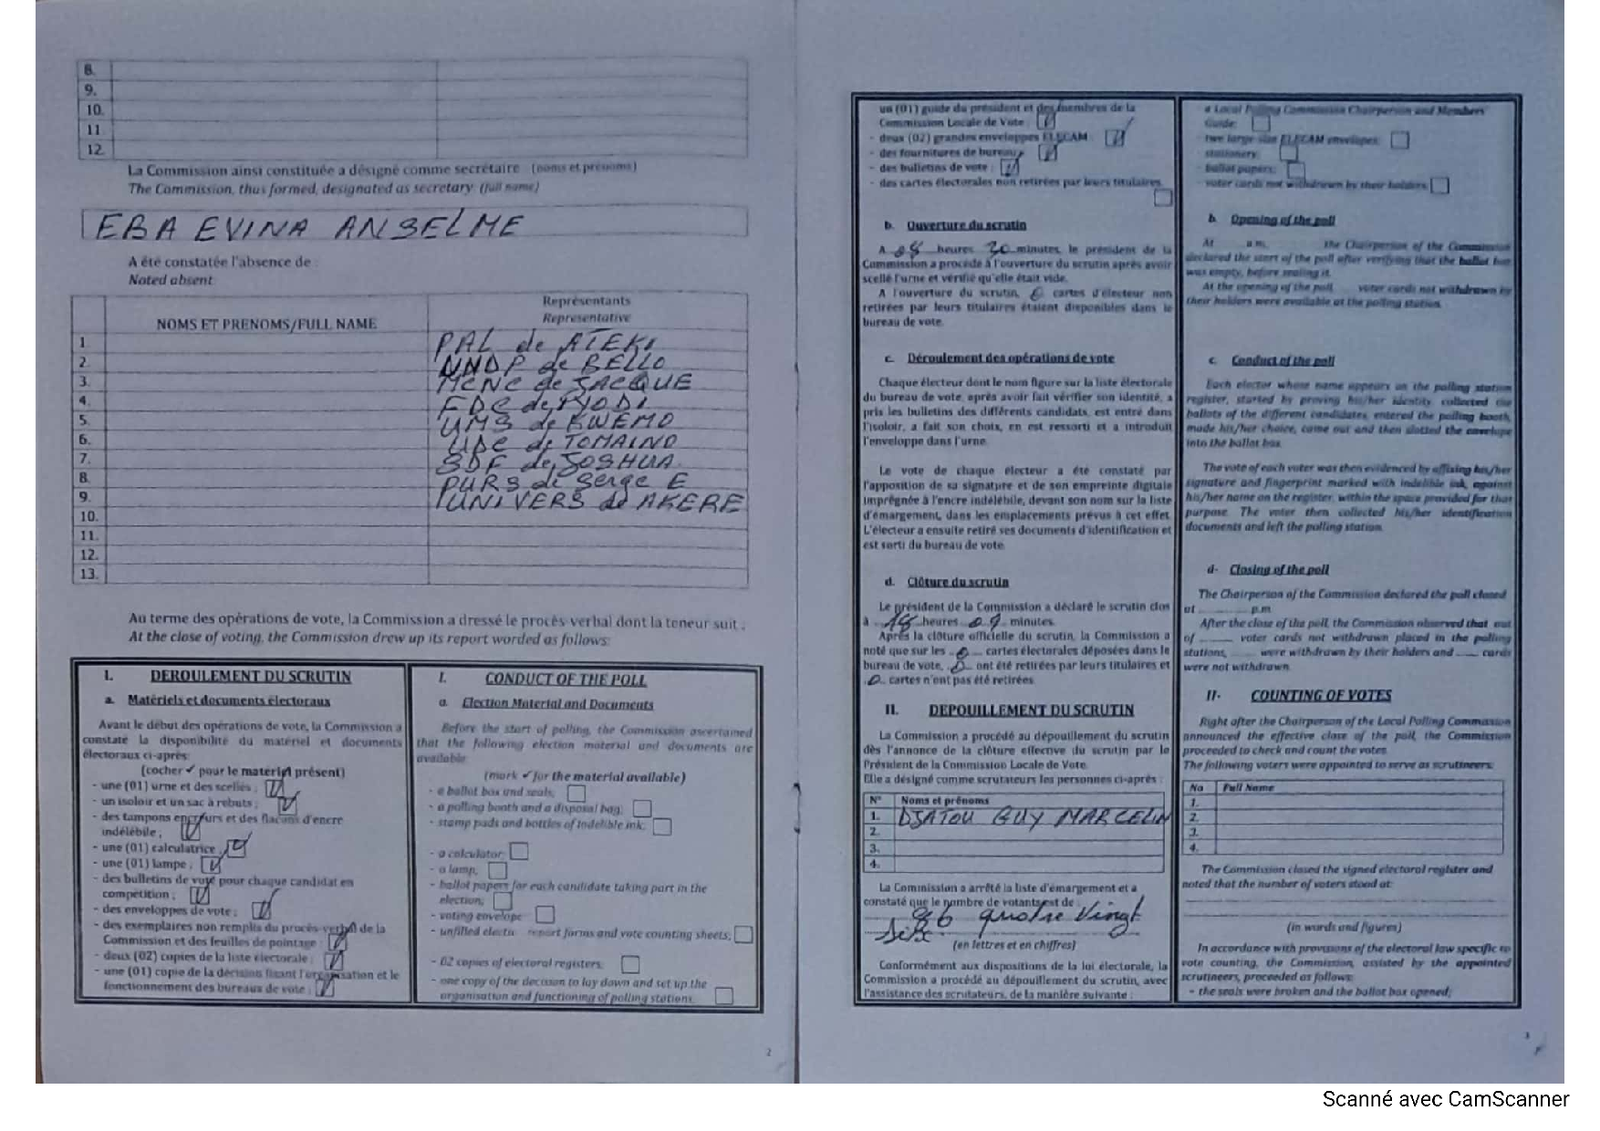 8.
9.
10.
11
12.
La Commission ainsi constituée a désigné comme secrétaire (noms et prénoms)
The Commission, thus formed, designated as secretary (full name)
EBA EVINA ANSELME
A été constatée l'absence de :
Noted absent
NOMS ET PRENOMS/FULL NAME
Représentants
Representative
1 PAL de ATEKI
2. UNDP de BELLO
3. MCNC de JACQUE
4. FDC de NODI
5. UMS de KWEMO
6. UDC de TOMAINO
7. SDF de JOSHUA
8. PURS de Serge E
9. UNIVERS de AKERE
10.
11.
12.
13.
Au terme des opérations de vote, la Commission a dressé le procès verbal dont la teneur suit :
At the close of voting, the Commission drew up its report worded as follows:
I. DEROULEMENT DU SCRUTIN
a. Matériels et documents électoraux
Avant le début des opérations de vote, la Commission a
constaté la disponibilité du matériel et documents
électoraux ci-après:
(cocher ✓ pour le matériel présent)
- une (01) urne et des scellés ;
- un isoloir et un sac à rebuts ;
- des tampons encreurs et des flacons d'encre
indélébile ;
- une (01) calculatrice ;
- une (01) lampe ;
- des bulletins de vote pour chaque candidat en
compétition ;
- des enveloppes de vote ;
- des exemplaires non remplis du procès-verbal de la
Commission et des feuilles de pointage
- deux (02) copies de la liste électorale ;
- une (01) copie de la décision fixant l'organisation et le
fonctionnement des bureaux de vote ;
I. CONDUCT OF THE POLL
a. Election Material and Documents
Before the start of polling, the Commission ascertained
that the following election material and documents are
available
(mark ✓ for the material available)
- a ballot box and seals;
- a polling booth and a disposal bag;
- stamp pads and bottles of indelible ink;
- a calculator;
- a lamp;
- ballot papers for each candidate taking part in the
election;
- voting envelope
- unfilled election report forms and vote counting sheets;
- 02 copies of electoral registers;
- one copy of the decision to lay down and set up the
organisation and functioning of polling stations.
2
un (01) guide du président et des membres de la
Commission Locale de Vote ;
- deux (02) grandes enveloppes ELECAM
- des fournitures de bureau ;
- des bulletins de vote ;
- des cartes électorales non retirées par leurs titulaires
b. Ouverture du scrutin
A 08 heures 20 minutes, le président de la
Commission a procédé à l'ouverture du scrutin après avoir
scellé l'urne et vérifié qu'elle était vide.
A l'ouverture du scrutin, 0 cartes d'électeur non
retirées par leurs titulaires étaient disponibles dans le
bureau de vote.
c. Déroulement des opérations de vote
Chaque électeur dont le nom figure sur la liste électorale
du bureau de vote, après avoir fait vérifier son identité, a
pris les bulletins des différents candidats, est entré dans
l'isoloir, a fait son choix, en est ressorti et a introduit
l'enveloppe dans l'urne.
Le vote de chaque électeur a été constaté par
l'apposition de sa signature et de son empreinte digitale
imprégnée à l'encre indélébile, devant son nom sur la liste
d'émargement, dans les emplacements prévus à cet effet.
L'électeur a ensuite retiré ses documents d'identification et
est sorti du bureau de vote.
d. Clôture du scrutin
Le président de la Commission a déclaré le scrutin clos
à 18 heures 09 minutes.
Après la clôture officielle du scrutin, la Commission a
noté que sur les 0 cartes électorales déposées dans le
bureau de vote, 0 ont été retirées par leurs titulaires et
0 cartes n'ont pas été retirées
II. DEPOUILLEMENT DU SCRUTIN
La Commission a procédé au dépouillement du scrutin
dès l'annonce de la clôture effective du scrutin par le
Président de la Commission Locale de Vote.
Elle a désigné comme scrutateurs les personnes ci-après :
N° Noms et prénoms
1. DJATOU GUY MARCELIN
2.
3.
4.
La Commission a arrêté la liste d'émargement et a
constaté que le nombre de votants est de :
86 quatre vingt
Six
(en lettres et en chiffres)
Conformément aux dispositions de la loi électorale, la
Commission a procédé au dépouillement du scrutin, avec
l'assistance des scrutateurs, de la manière suivante :
a Local Polling Commission Chairperson and Members'
Guide;
two large size ELECAM envelopes;
stationery;
- ballot papers;
- voter cards not withdrawn by their holders
b. Opening of the poll
At a.m. the Chairperson of the Commission
declared the start of the poll after verifying that the ballot box
was empty, before sealing it.
At the opening of the poll voter cards not withdrawn by
their holders were available at the polling station.
c. Conduct of the poll
Each elector whose name appears on the polling station
register, started by proving his/her identity, collected the
ballots of the different candidates, entered the polling booth,
made his/her choice, came out and then slotted the envelope
into the ballot box.
The vote of each voter was then evidenced by affixing his/her
signature and fingerprint marked with indelible ink, against
his/her name on the register, within the space provided for that
purpose. The voter then collected his/her identification
documents and left the polling station.
d- Closing of the poll
The Chairperson of the Commission declared the poll closed
at p.m.
After the close of the poll, the Commission observed that out
of voter cards not withdrawn placed in the polling
stations, were withdrawn by their holders and cards
were not withdrawn.
II- COUNTING OF VOTES
Right after the Chairperson of the Local Polling Commission
announced the effective close of the poll, the Commission
proceeded to check and count the votes.
The following voters were appointed to serve as scrutineers:
No Full Name
1.
2.
3.
4.
The Commission closed the signed electoral register and
noted that the number of voters stood at:
(in words and figures)
In accordance with provisions of the electoral law specific to
vote counting, the Commission, assisted by the appointed
scrutineers, proceeded as follows:
- the seals were broken and the ballot box opened;
3
Scanné avec CamScanner